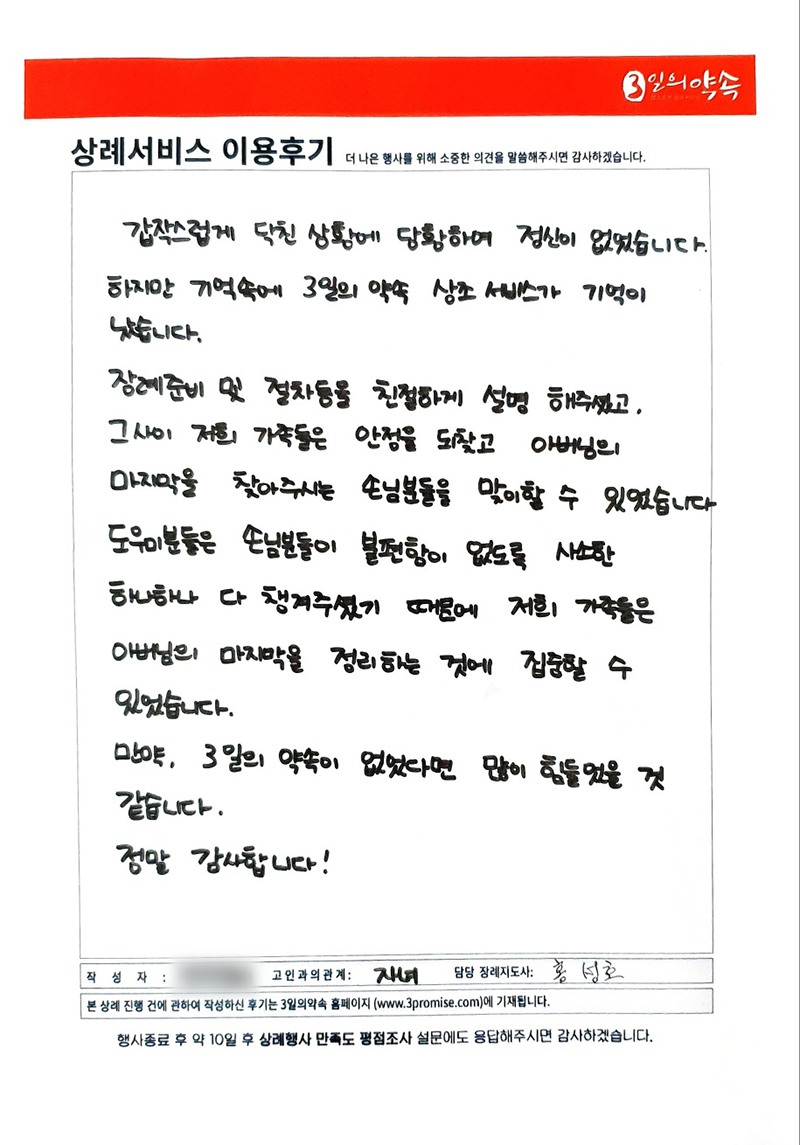 3일의약속
상례서비스 이용후기 더 나은 행사를 위해 소중한 의견을 말씀해주시면 감사하겠습니다.
갑작스럽게 닥친 상황에 당황하여 정신이 없었습니다.
하지만 기억속에 3일의 약속 상조 서비스가 기억이
났습니다.
장례준비 및 절차등을 친절하게 설명 해주셨고,
그사이 저희 가족들은 안정을 되찾고 아버님의
마지막을 찾아주시는 손님분들을 맞이할 수 있었습니다
도우미분들은 손님분들이 불편함이 없도록 사소한
하나하나 다 챙겨주셨기 때문에 저희 가족들은
아버님의 마지막을 정리하는 것에 집중할 수
있었습니다.
만약, 3일의 약속이 없었다면 많이 힘들었을 것
같습니다.
정말 감사합니다!
작 성 자 : 고인과의관계: 자녀 담당 장례지도사: 홍
본 상례 진행 건에 관하여 작성하신 후기는 3일의약속 홈페이지 (www.3promise.com)에 기재됩니다.
행사종료 후 약 10일 후 상례행사 만족도 평점조사 설문에도 응답해주시면 감사하겠습니다.